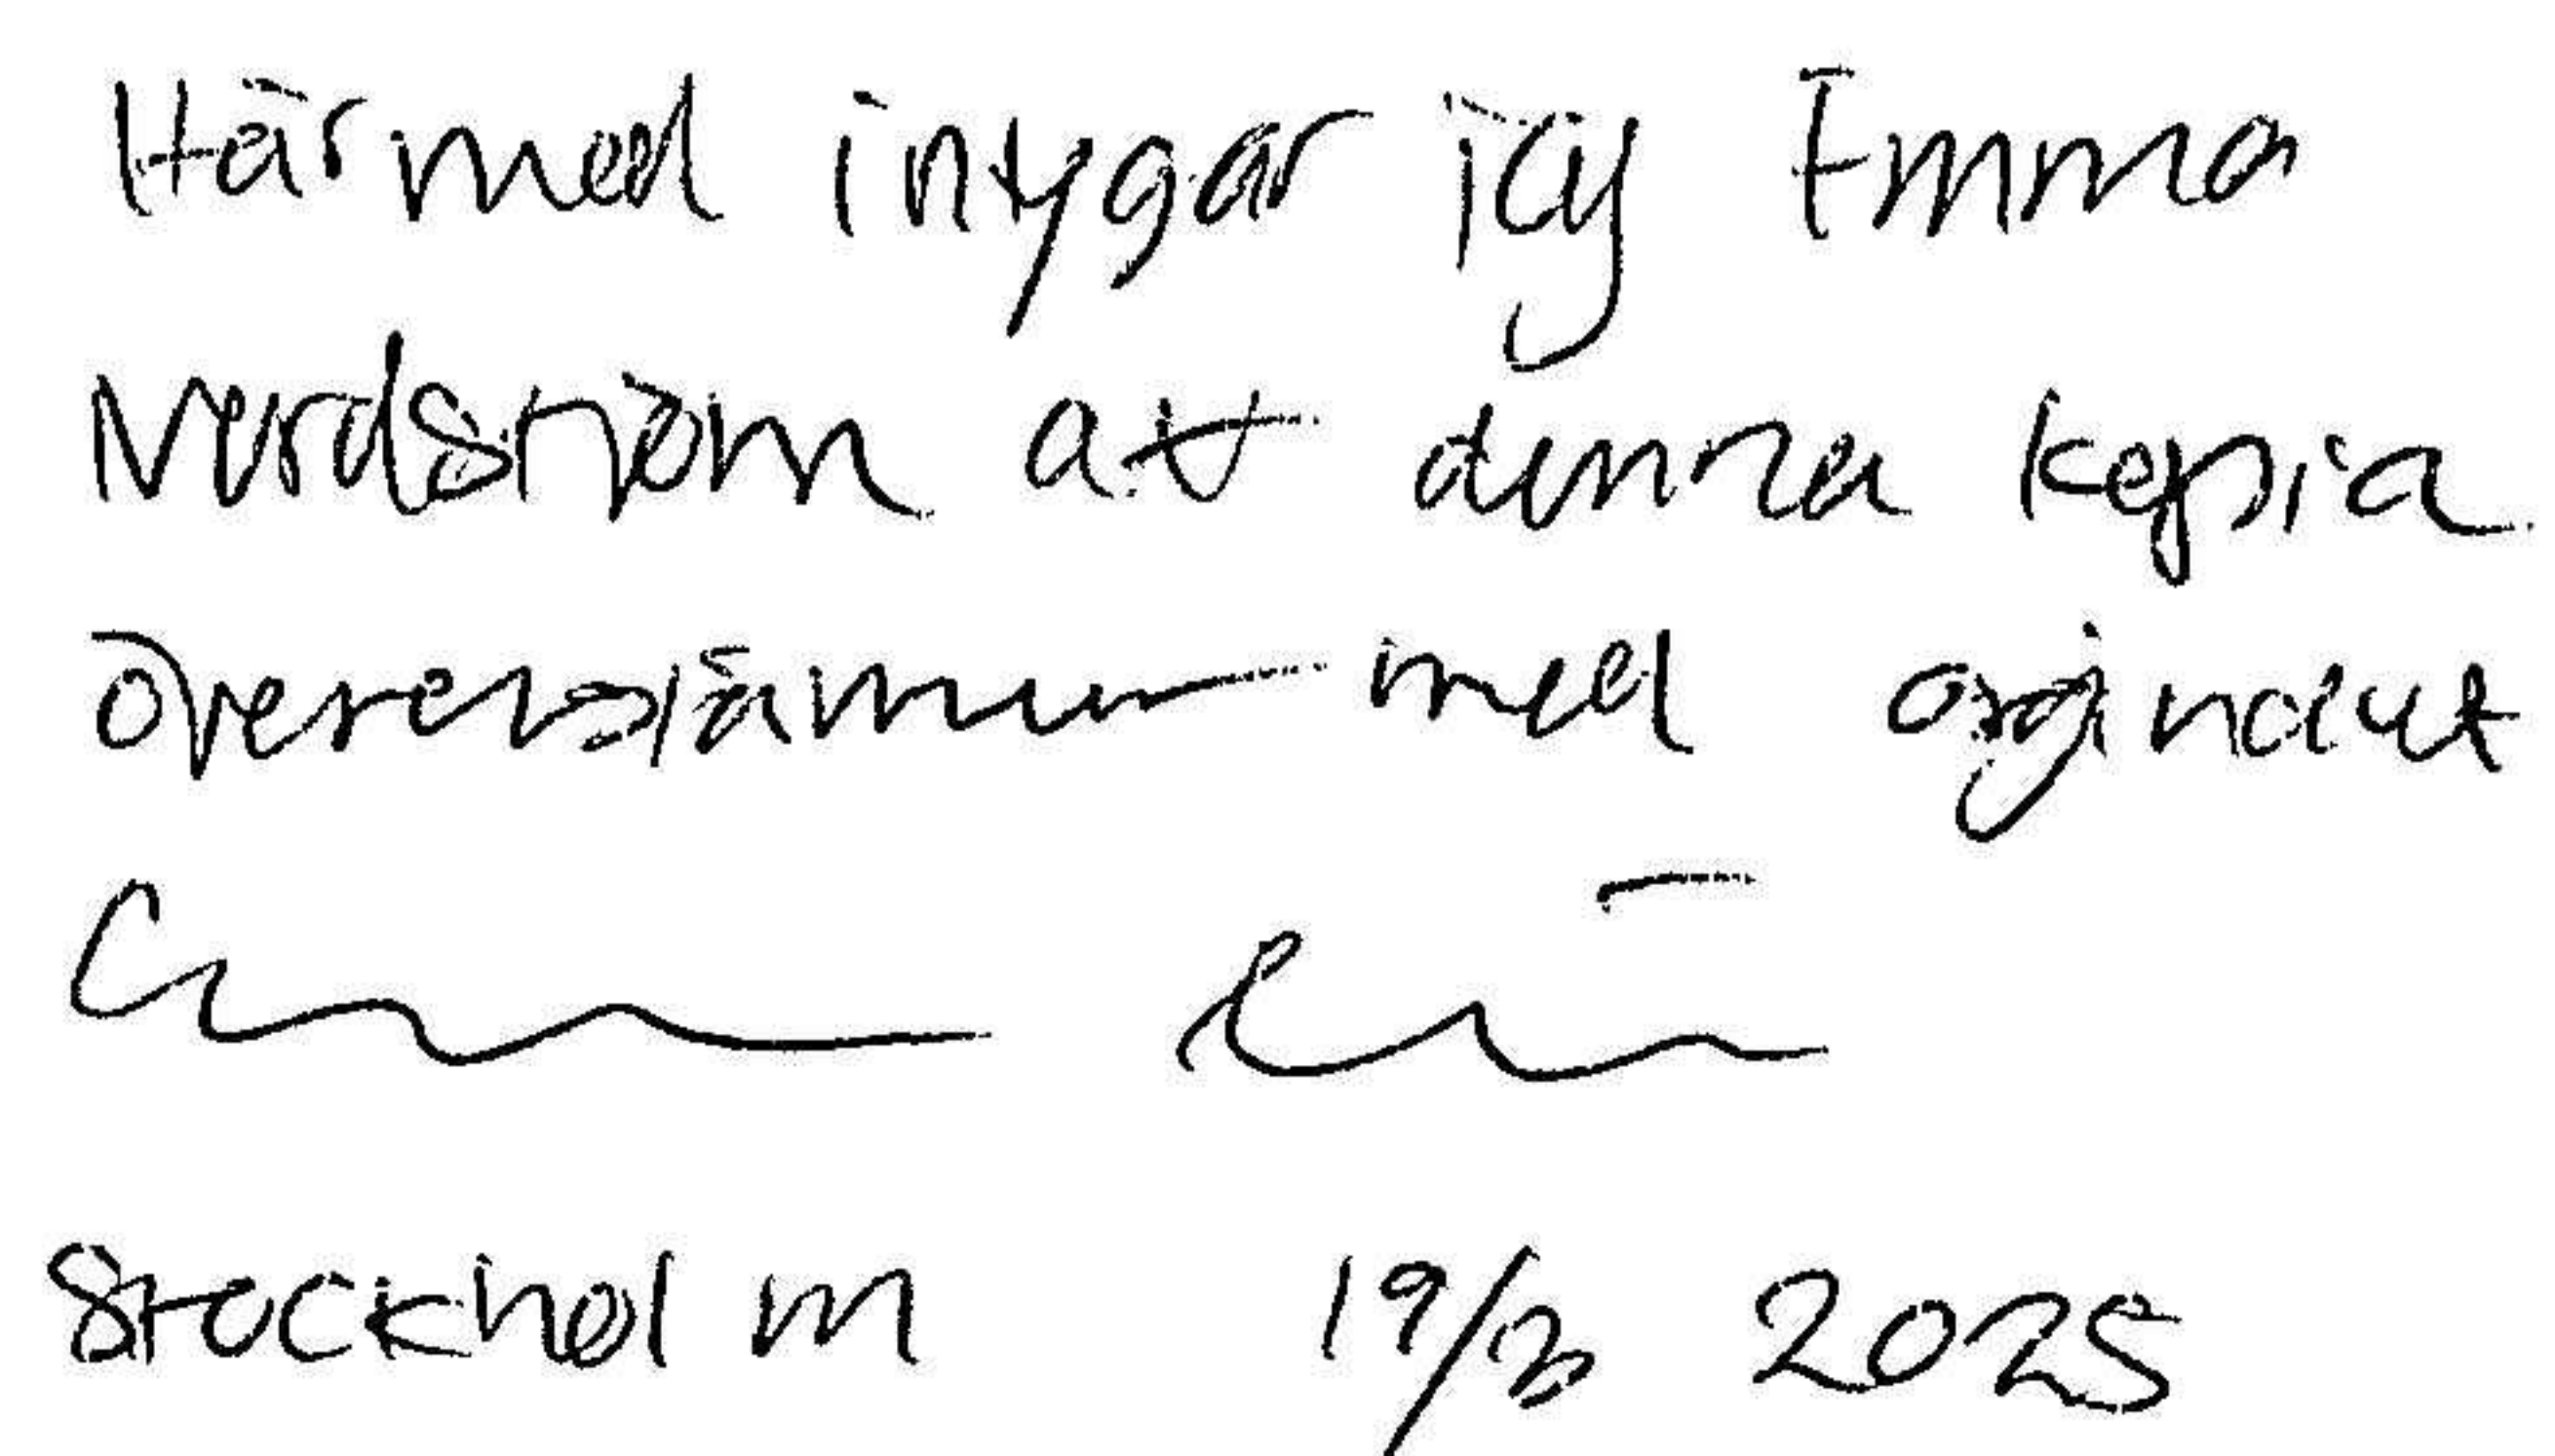 Härmed intygar jag Emma
Nordström att denna kopia
överensstämmer med orginalet
Stockholm 19/3 2025